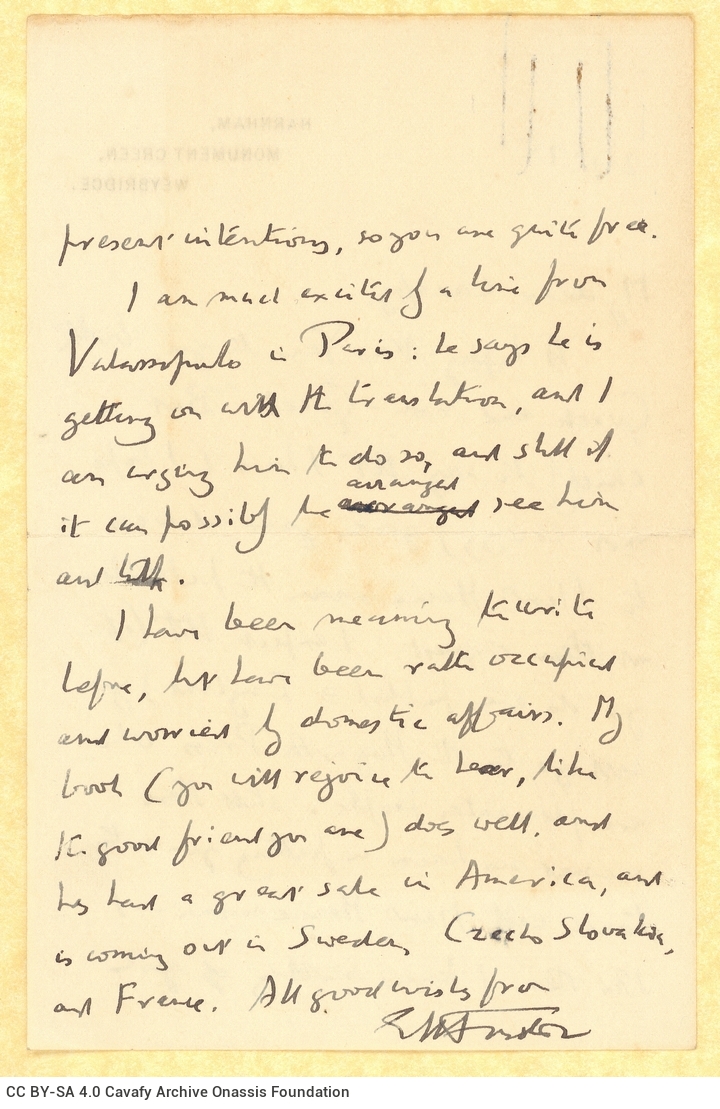 HARNHAM,
MONUMENT GREEN,
WEYBRIDGE.
present intentions, so you are quite free.
I am much excited by a line from
Valassopulo in Paris: he says he is
getting on with the translation, and I
am urging him to do so, and shall if
it can possibly be arranged see him
and talk.
I have been meaning to write
before, but have been rather occupied
and worried by domestic affairs. My
book (you will rejoice to hear, like
the good friend you are) does well, and
has had a great sale in America, and
is coming out in Sweden, Czecho Slovakia,
and France. All good wishes from
EMForster
CC BY-SA 4.0 Cavafy Archive Onassis Foundation